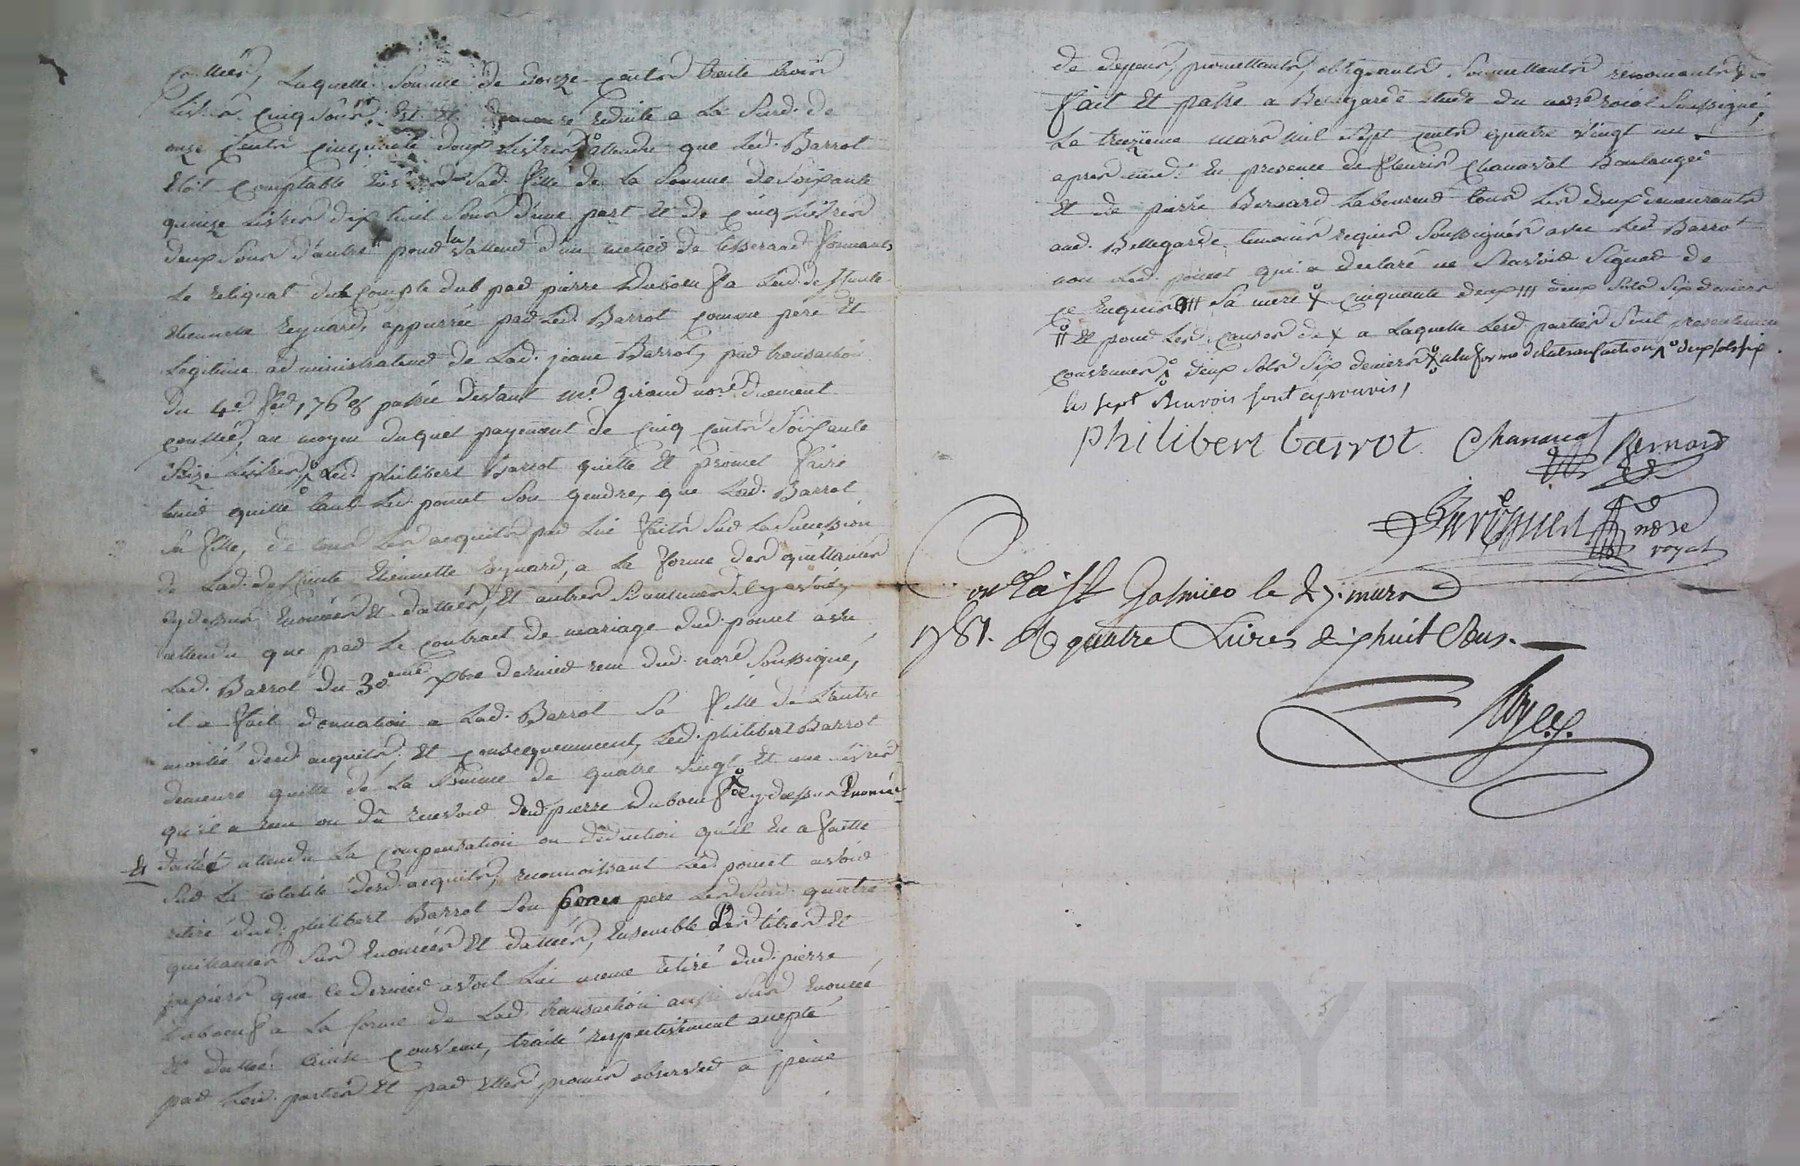 laquelle somme de douze cents trente trois
livres cinq sous est et demeure reduite a la sud. de
onze cents cinquante deux livres attendu que led. Barrot
etoit comptable envers sad. fille de la somme de soixante
quinze livres dix huit sous d'une part et de cinq livres
deux sous d'autre pour la valleur d'un metier de tisserand formants
le reliquat du compte dub par pierre Duboeuf a lad. deffunte
etiennette Reynard, appurée par led. Barrot comme pere et
legitime administrateur de lad. jeane Barrot, par transaction
du 4e fer. 1768 passée devant me. giraud nore. duement
conllée, au moyen duquel payement de cinq cents soixante
seize livres led. philibert Barrot quitte et promet faire
tenir quitte tant led. poncet son gendre, que lad. Barrot
sa fille, de tous les acquits par lui faits sur la succession
de lad. deffunte etiennette Reynard, a la forme des quittances
cydessus enoncées et dattées, et autres
attendu que par le contrat de mariage dud. poncet avec
lad. Barrot du 30eme xbre dernier reçu dud. nore soussigné,
il a fait donnation a lad. Barrot sa fille de l'autre
moitié desd. acquits. et consequemment, led. philibert Barrot
demeure quitte de la somme de quatre vingt et une livres
qu'il a reçu ou dû recevoir dud. pierre Duboeuf cydessus enoncée
et dattée attendu la compensation ou déduction qu'il en a faitte
sur la totalité desd. acquits, reconnoissant led. poncet avoir
retiré dud. philibert Barrot son beau pere les sud. quatre
quittances sus enoncées et dattées, ensemble les titres et
papiers que ce dernier avoit lui meme retiré dud. pierre
Duboeuf a la forme de lad. transaction aussi sus enoncée
et dattée. Ainsi convenu, traité respectivement accepté
par lesd. parties et par elles promis observer a peine
de depens, promettants, obligeants, soumettants renonceants &a
fait et passé a Bellegarde etude du nore roial soussigné,
le treizieme mars mil sept cents quatre vingt un
apres midi en presence de fleuris Chanavat Boulanger
et de pierre Bernard laboureur tous les deux demeurants
aud. Bellegarde temoins requis soussignés avec led. Barrot
non led. poncet qui a declaré ne sçavoir signer de
ce enquis /// sa mere x cinquante deux /// deux sols six deniers
et pour les causes de x a laquelle lesd. parties sont presentement
convenues deux sols six deniers a la forme de la transaction deux sols six
les sept renvois sont aprouvés,
philibert barrot. Chanavat Bernard
nore
royal
Conlle a St Galmier le 27. mars
1781. R quatre Livres dixhuit sous.